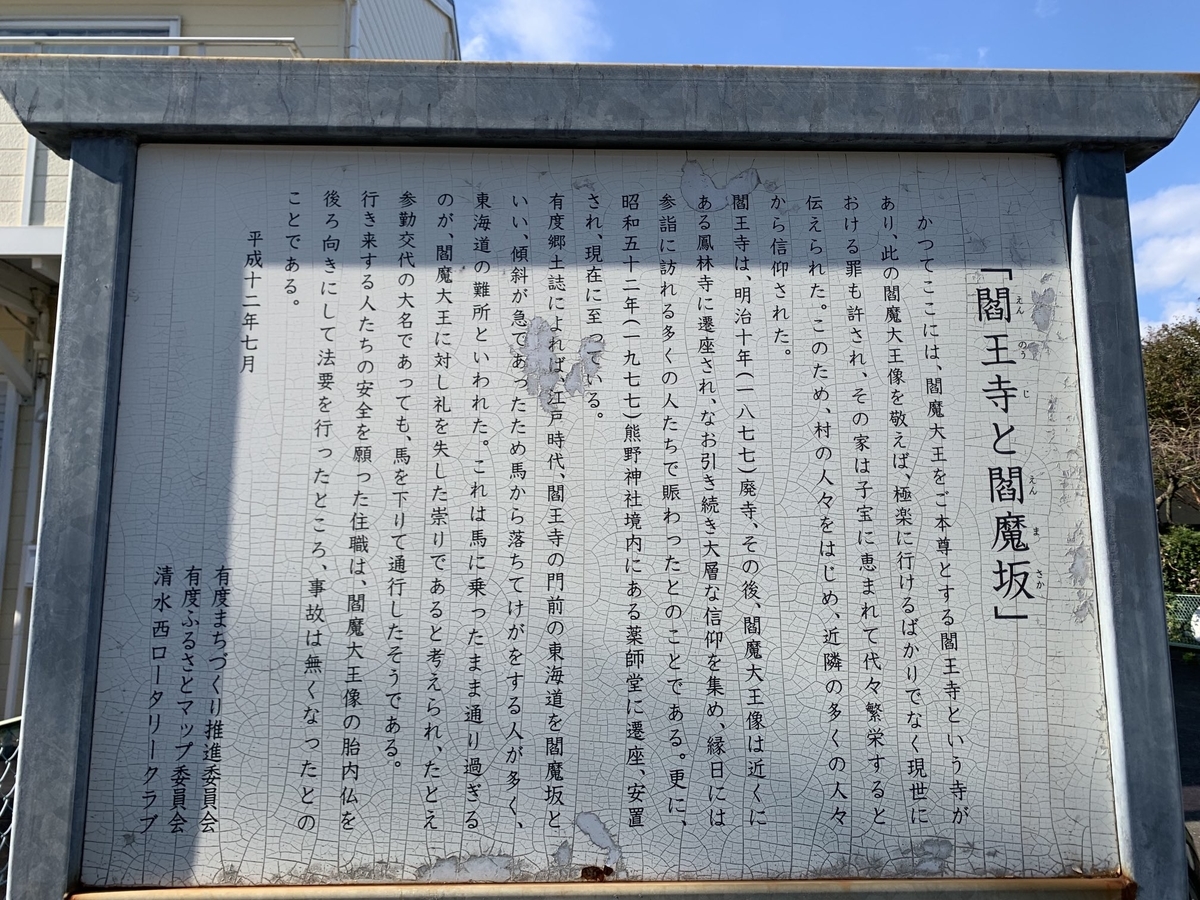 「閻王寺と閻魔坂」
えんのうじ えんまさか
かつてここには、閻魔大王をご本尊とする閻王寺という寺が
あり、此の閻魔大王像を敬えば、極楽に行けるばかりでなく現世に
おける罪も許され、その家は子宝に恵まれて代々繁栄すると
伝えられた。このため、村の人々をはじめ、近隣の多くの人々
から信仰された。
閻王寺は、明治十年(一八七七)廃寺、その後、閻魔大王像は近くに
ある鳳林寺に遷座され、なお引き続き大層な信仰を集め、縁日には
参詣に訪れる多くの人たちで賑わったとのことである。更に、
昭和五十二年(一九七七)熊野神社境内にある薬師堂に遷座、安置
され、現在に至っている。
有度郷土誌によれば、江戸時代、閻王寺の門前の東海道を閻魔坂と
いい、傾斜が急であったため馬から落ちてけがをする人が多く、
東海道の難所といわれた。これは馬に乗ったまま通り過ぎる
のが、閻魔大王に対し礼を失した祟りであると考えられ、たとえ
参勤交代の大名であっても、馬を下りて通行したそうである。
行き来する人たちの安全を願った住職は、閻魔大王像の胎内仏を
後ろ向きにして法要を行ったところ、事故は無くなったとの
ことである。
平成十二年七月
有度まちづくり推進委員会
有度ふるさとマップ委員会
清水西ロータリークラブ